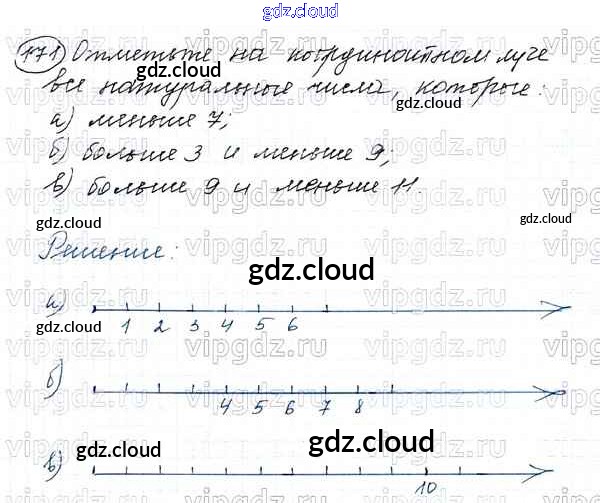 gdz.cloud
171 Отметьте на координатном луче
все натуральные числа, которые:
а) меньше 7;
б) больше 3 и меньше 9;
в) больше 9 и меньше 11.
Решение:
а) 1 2 3 4 5 6
б) 4 5 6 7 8
в) 10
gdz.cloud
gdz.cloud
gdz.cloud
gdz.cloud
gdz.cloud
gdz.cloud
gdz.cloud
gdz.cloud
vipgdz.ru
vipgdz.ru
vipgdz.ru